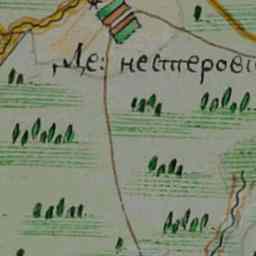 Де: нестерови